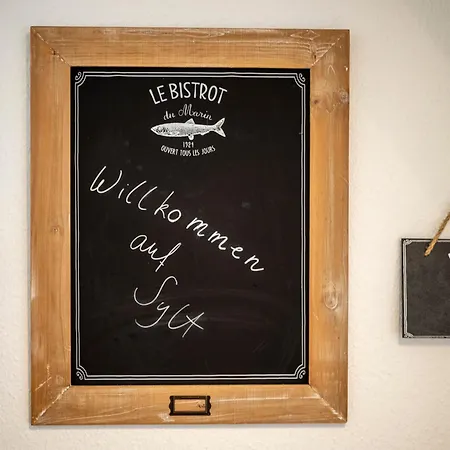 LE BISTROT
du Marin
1924
OUVERT TOUS LES JOURS
Willkommen
auf
Sylt